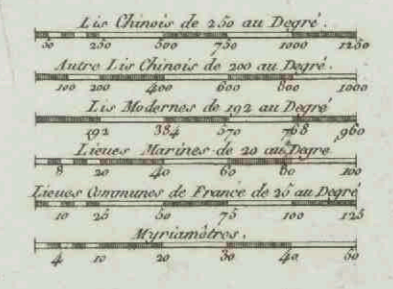 Lis Chinois de 250 au Degré.
50 250 500 750 1000 1250
Autre Lis Chinois de 200 au Degré.
100 200 400 600 800 1000
Lis Modernes de 192 au Degré
192 384 570 768 960
Lieues Marines de 20 au Degre
8 20 40 60 80 100
Lieues Communes de France de 25 au Degré
10 25 50 75 100 125
Myriamètres.
4 10 20 30 40 50